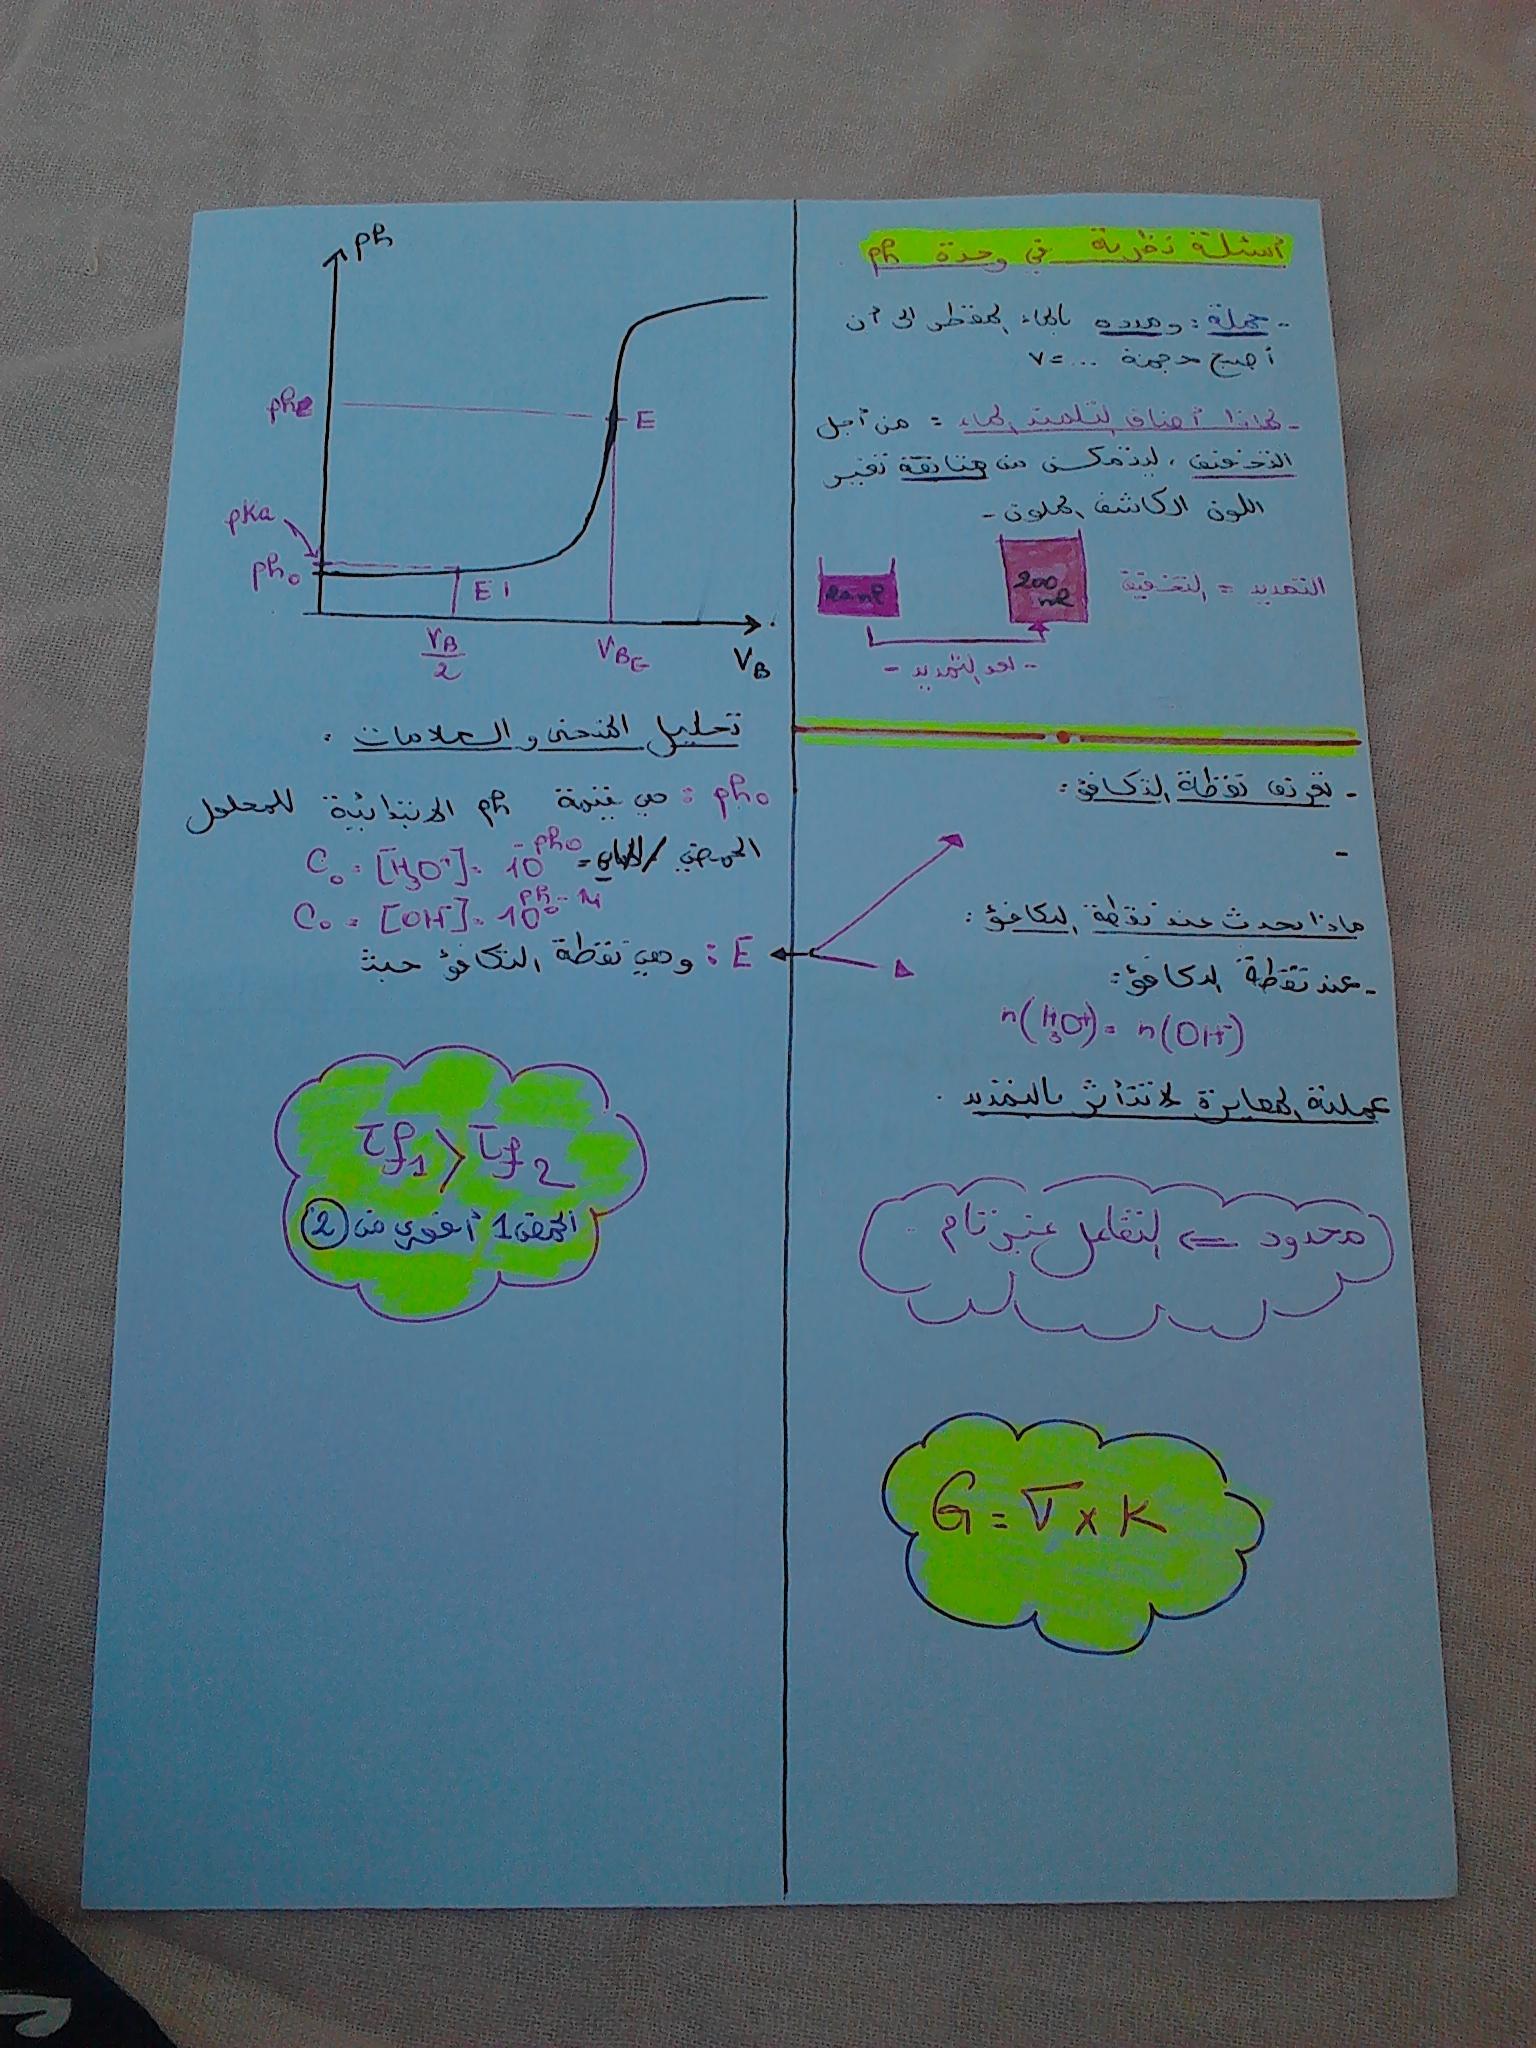 أسئلة نظرية في وحدة ph
- جملة : ومدده بالماء المقطر الى أن
أصبح حجمة ... =v
- لماذا أضاف التلميذ الماء = من أجل
التخفيف ، ليتمكن من متابعة تغير
اللون الكاشف الملون -
التمديد = التخفيف
20 ml
200 ml
- بعد التمديد -
- تعرف نقطة التكافؤ :
-
ماذا يحدث عند نقطة التكافؤ :
- عند نقطة التكافؤ :
n(H₃O⁺) = n(OH⁻)
عملية المعايرة لا تتأثر بالتمديد .
محدود <= التفاعل غير تام
G = σ x K
ph
phE
E
pKa
ph₀
E1
VB/2
VBE
VB
تحليل المنحنى و العلامات :
ph₀ : هي قيمة ph الابتدائية للمحلول
الحمضي /
C₀ = [H₃O⁺] = 10^-ph₀
C₀ = [OH⁻] = 10^ph₀-14
E : وهي نقطة التكافؤ حيث
τf₁ > τf₂
الحمض 1 أقوى من 2